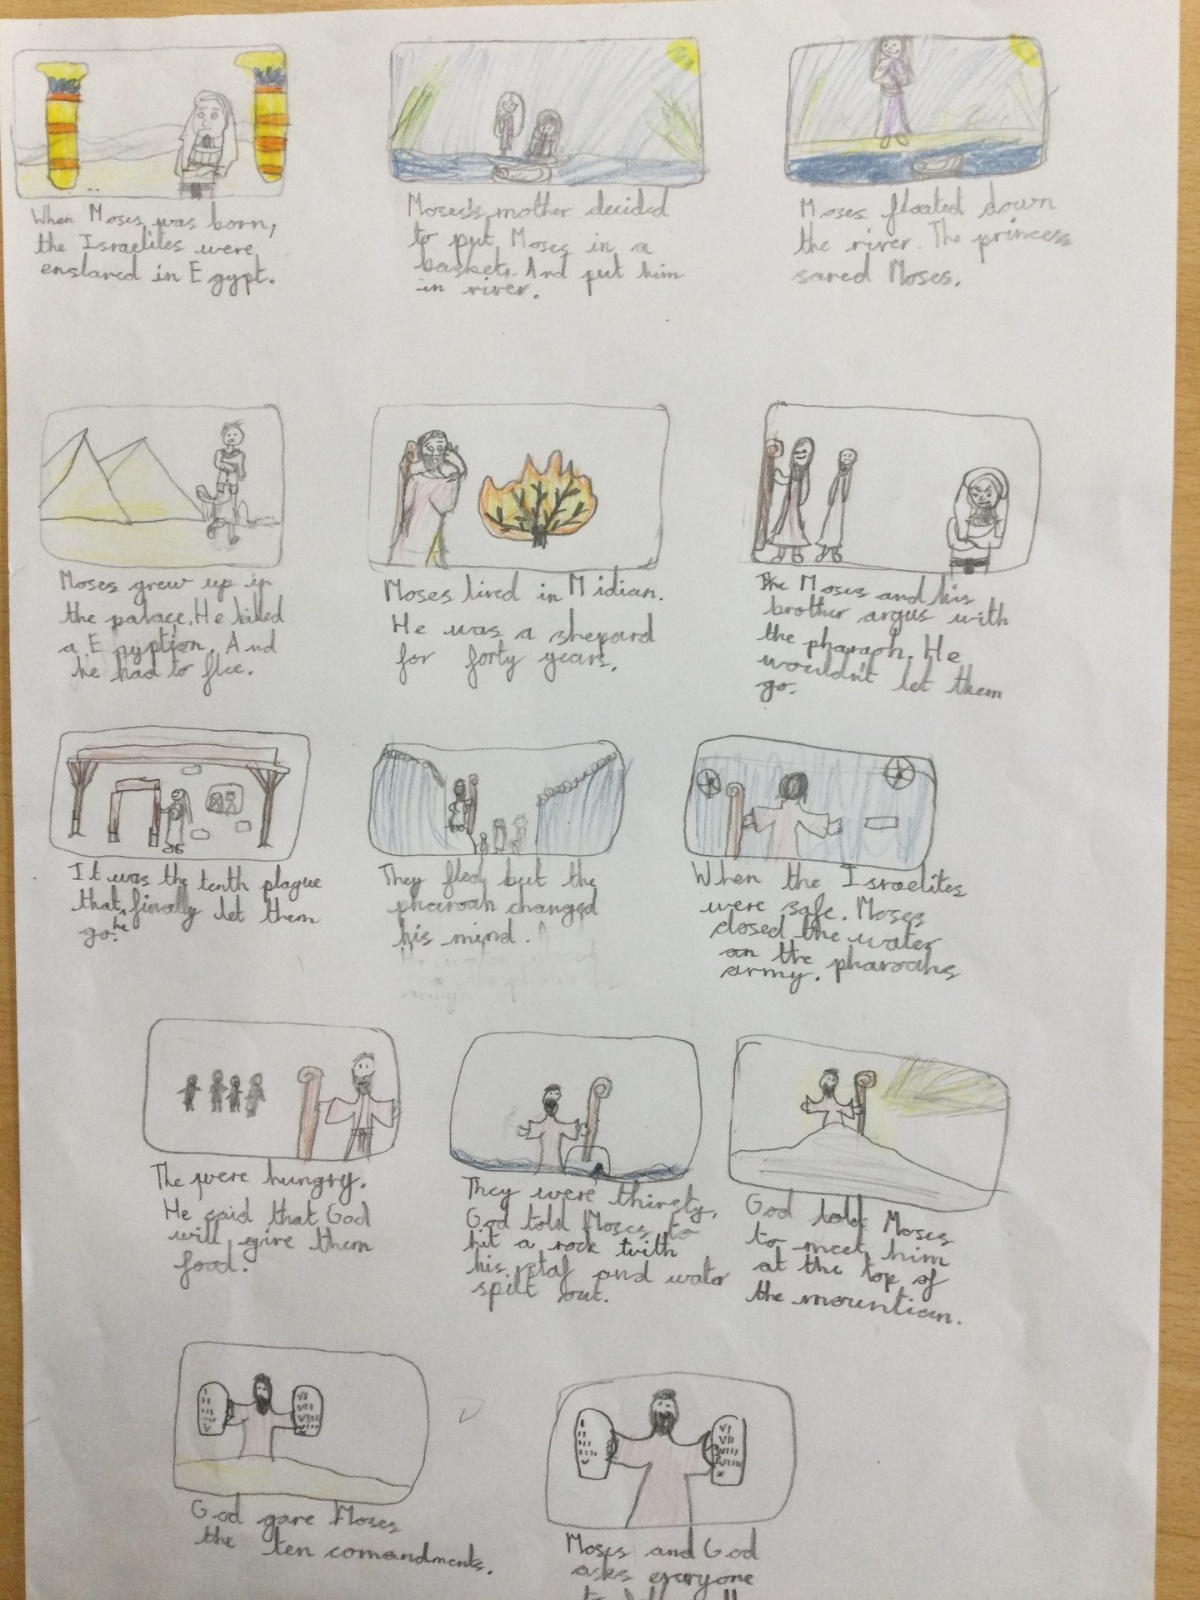 When Moses was born,
the Israelites were
enslaved in Egypt.
Moses's mother decided
to put Moses in a
baskets. And put him
in river.
Moses floated down
the river. The princess
saved Moses.
Moses grew up in
the palace. He killed
a Egyption. And
he had to flee.
Moses lived in Midian.
He was a shepard
for forty years.
The Moses and his
brother argus with
the pharaph. He
wouldn't let them
go.
It was the tenth plague
that he finally let them
go.
They fled but the
pharoah changed
his mind.
When the Israelites
were safe. Moses
closed the water
on the pharoahs
army.
The were hungry.
He said that God
will give them
food.
They were thirsty,
God told Moses to
hit a rock with
his staf and water
spilt out.
God told Moses
to meet him
at the top of
the mountian.
God gave Moses
the ten comandments.
Moses and God
asks everyone